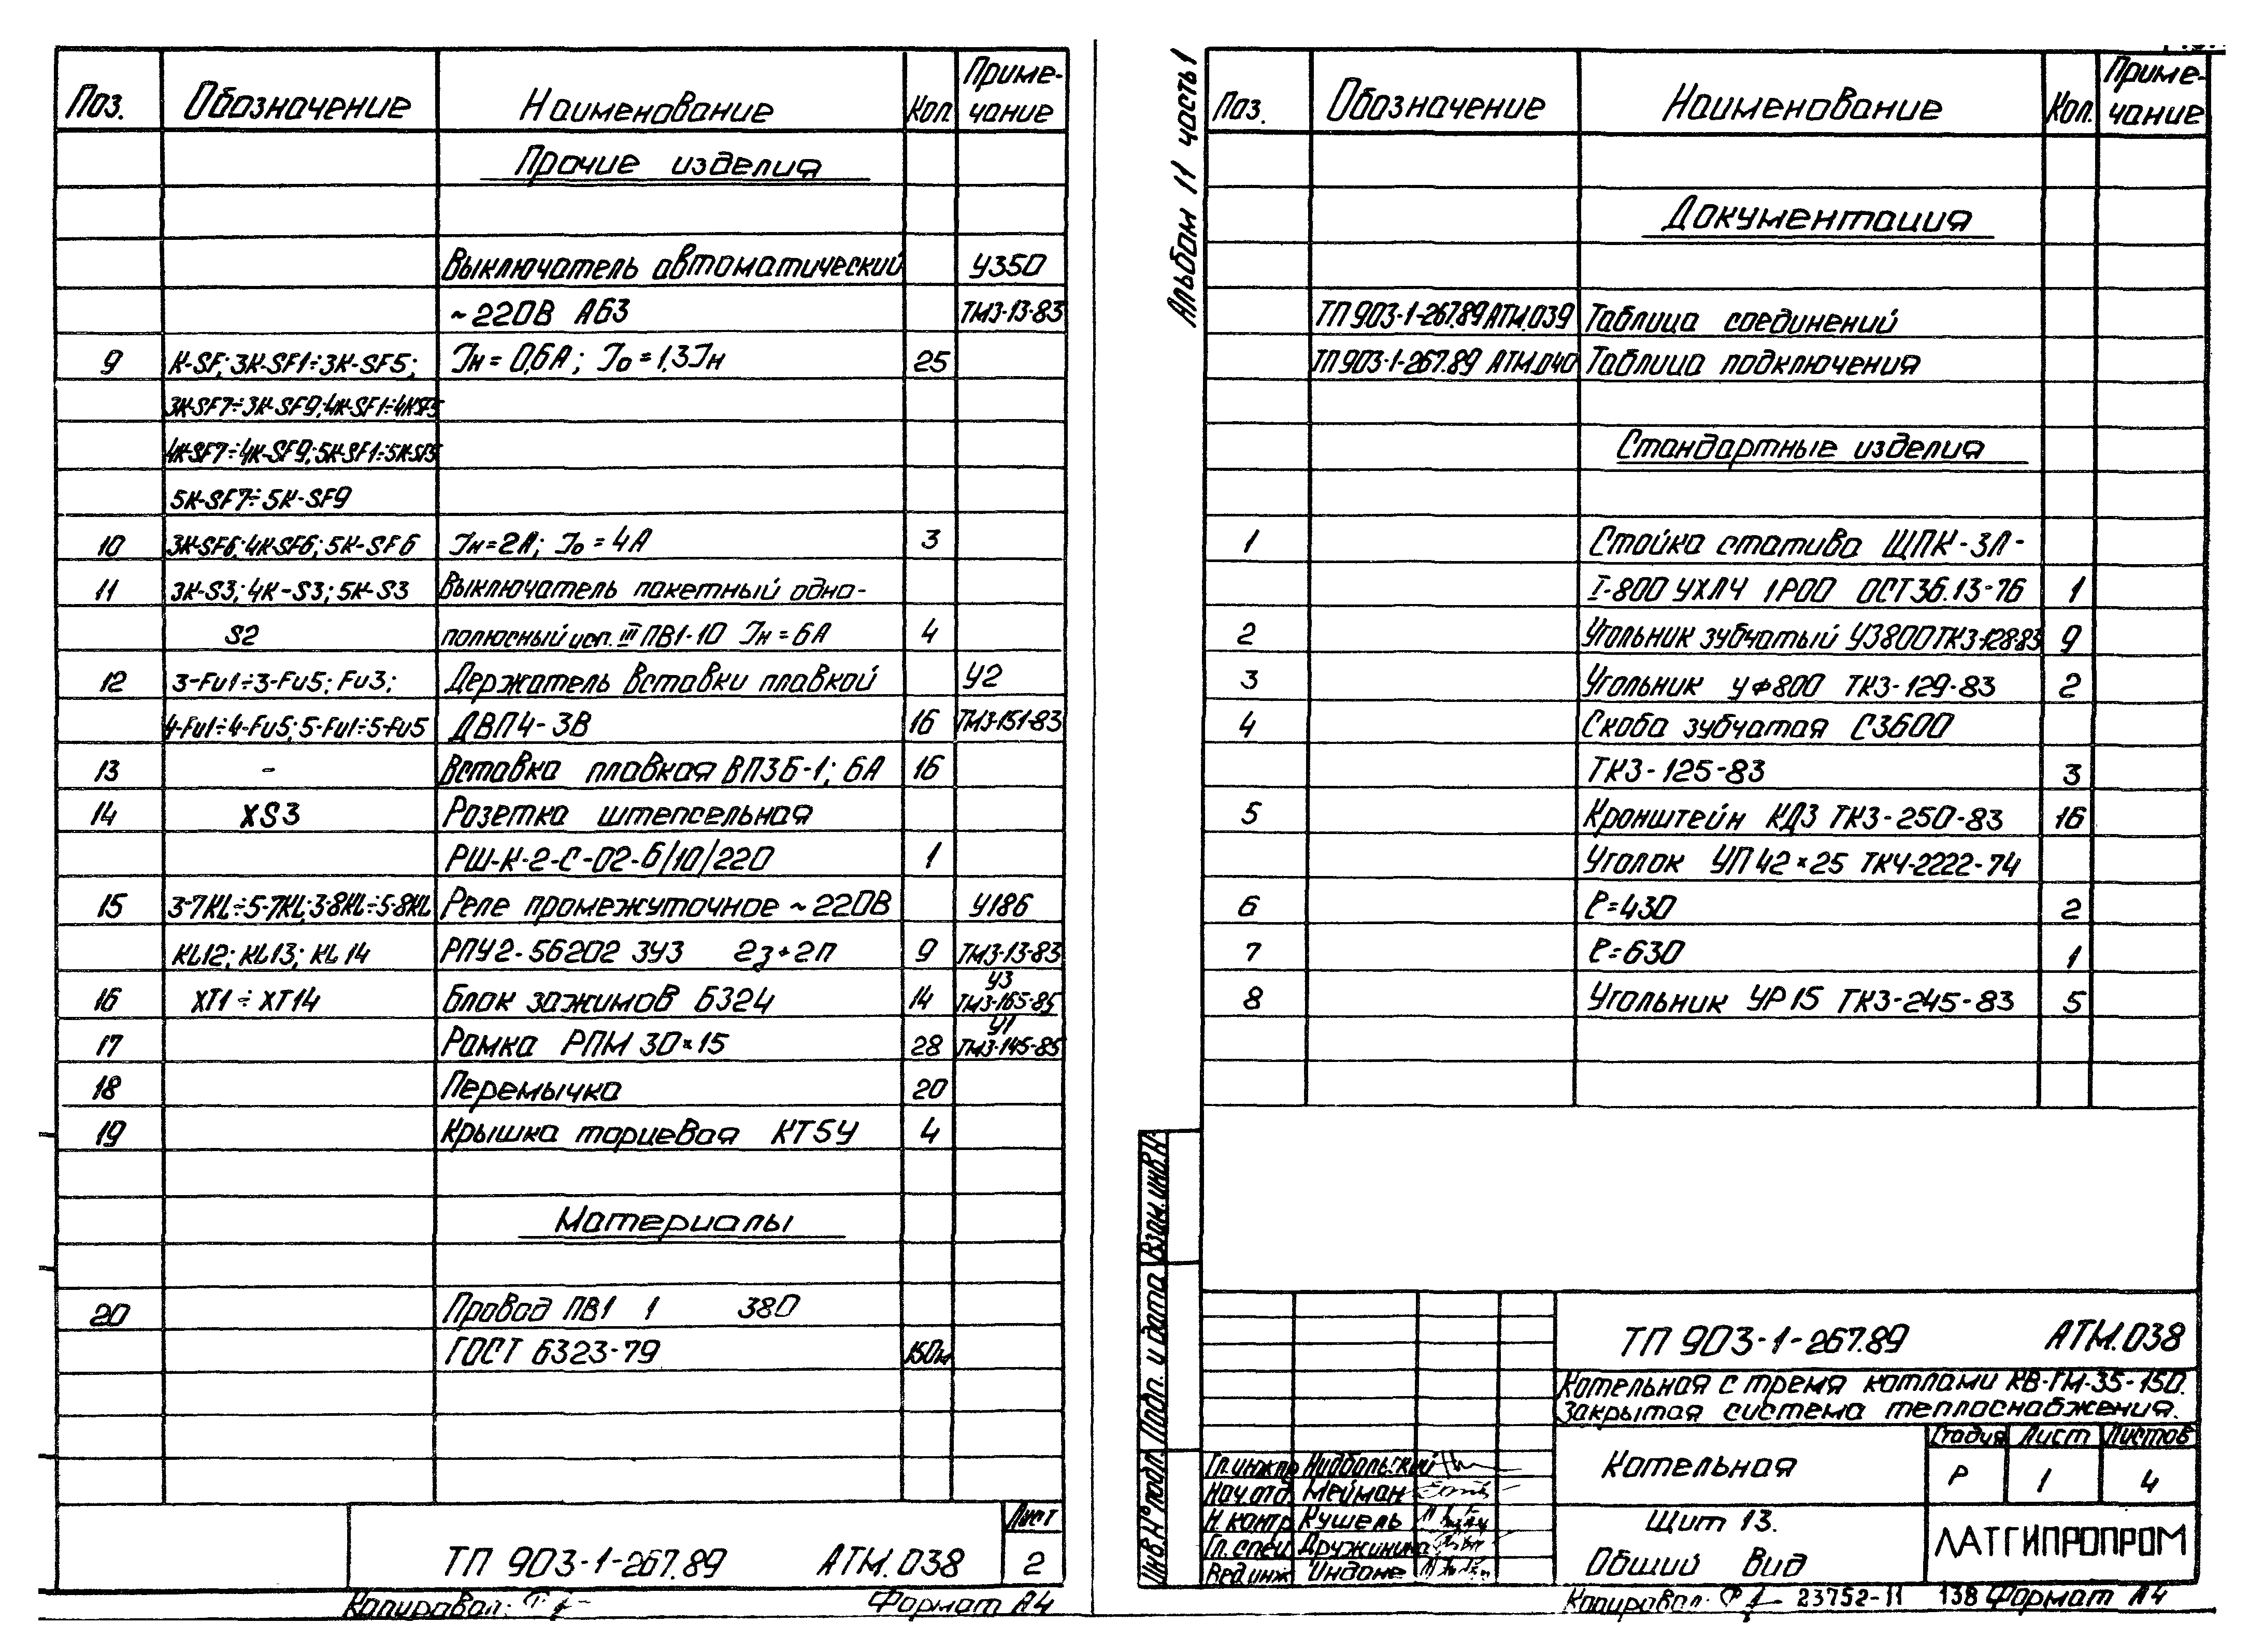 Поз. Обозначение Наименование Кол. Приме-
чание
Прочие изделия
Выключатель автоматический У350
~220В А63 ТМ3-13-83
9 К-SF; 3К-SF1÷3К-SF5; Iн=0,6А; Iо=1,3Iн 25
3К-SF7÷3К-SF9; 4К-SF1÷4КSF5
4К-SF7÷4К-SF9; 5К-SF1÷5К-SF5
5К-SF7÷5К-SF9
10 3К-SF6; 4К-SF6; 5К-SF6 Iн=2А; Iо=4А 3
11 3К-S3; 4К-S3; 5К-S3 Выключатель пакетный одно-
S2 полюсный исп. III ПВ1-10 Iн=6А 4
12 3-Fu1÷3-Fu5; Fu3; Держатель вставки плавкой У2
4-Fu1÷4-Fu5; 5-Fu1÷5-Fu5 ДВП4-3В 16 ТМ3-151-83
13 - Вставка плавкая ВП3Б-1; 6А 16
14 XS3 Розетка штепсельная
РШ-К-2-С-02-6/10/220 1
15 3-7KL÷5-7KL; 3-8KL÷5-8KL Реле промежуточное ~220В У186
KL12; KL13; KL14 РПУ2-56202 3У3 2з+2п 9 ТМ3-13-83
16 XT1÷XT14 Блок зажимов Б324 14 У3
ТМ3-165-85
17 Рамка РПМ 30×15 28 У1
ТМ3-145-85
18 Перемычка 20
19 Крышка торцевая КТ5У 4
Материалы
20 Провод ПВ1 1 380
ГОСТ 6323-79 150м
Лист
ТП 903-1-267.89 АТМ.038 2
Копировал: Формат А4
Альбом 11 часть 1
Поз. Обозначение Наименование Кол. Приме-
чание
Документация
ТП 903-1-267.89 АТМ.039 Таблица соединений
ТП 903-1-267.89 АТМ.040 Таблица подключения
Стандартные изделия
1 Стойка статива ЩПК-ЗЛ-
I-800 УХЛ4 IР00 ОСТ36.13-76 1
2 Угольник зубчатый УЗ800 ТК3-128-83 9
3 Угольник УФ800 ТК3-129-83 2
4 Скоба зубчатая СЗ600
ТК3-125-83 3
5 Кронштейн КД3 ТК3-250-83 16
Уголок УП 42×25 ТК4-2222-74
6 ℓ=430 2
7 ℓ=630 1
8 Угольник УР15 ТК3-245-83 5
Взам. инв.№
Подп. и дата
Инв.№ подл.
ТП 903-1-267.89 АТМ.038
Котельная с тремя котлами КВ-ГМ-35-150.
Закрытая система теплоснабжения.
Котельная Стадия Лист Листов
Р 1 4
Гл.инж.пр Нидбальский
Нач.отд. Мейман
Н.контр. Кушель
Гл.спец. Дружинина
Вед.инж. Индане
Щит 13.
Общий вид
ЛАТГИПРОПРОМ
Копировал: 23752-11 138 Формат А4